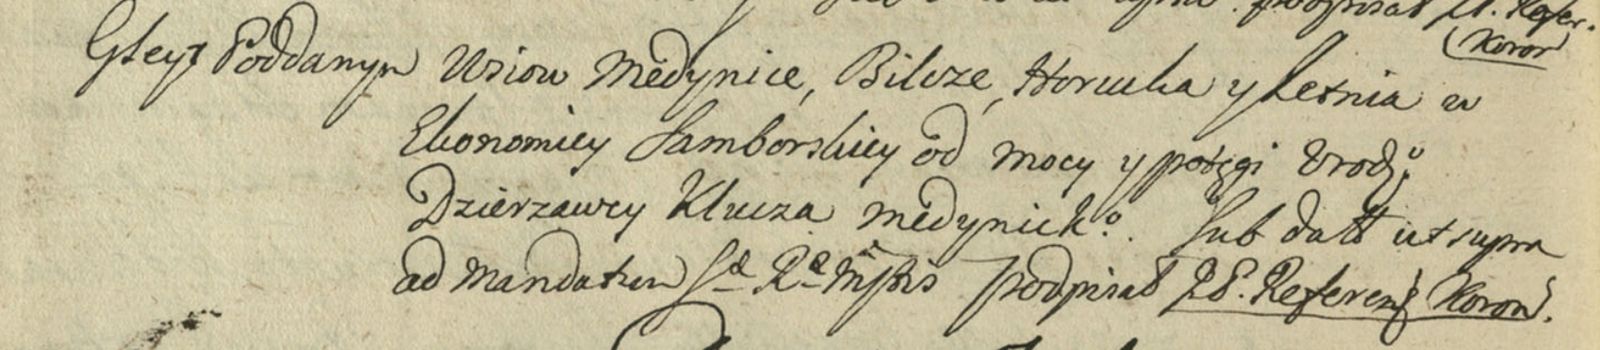 podpisał JX. Refer.
Koron
Gleyt Poddanym Wsiow Medynice, Bilcze, Horucka y Letnia w
Ekonomiey Samborskiey od mocy y potęgi Urodz:º
Dzierzawcy Klucza Medynickº. Sub datt ut supra
ad Mandatum S. R. Mttis podpisał JX. Referend Koron.